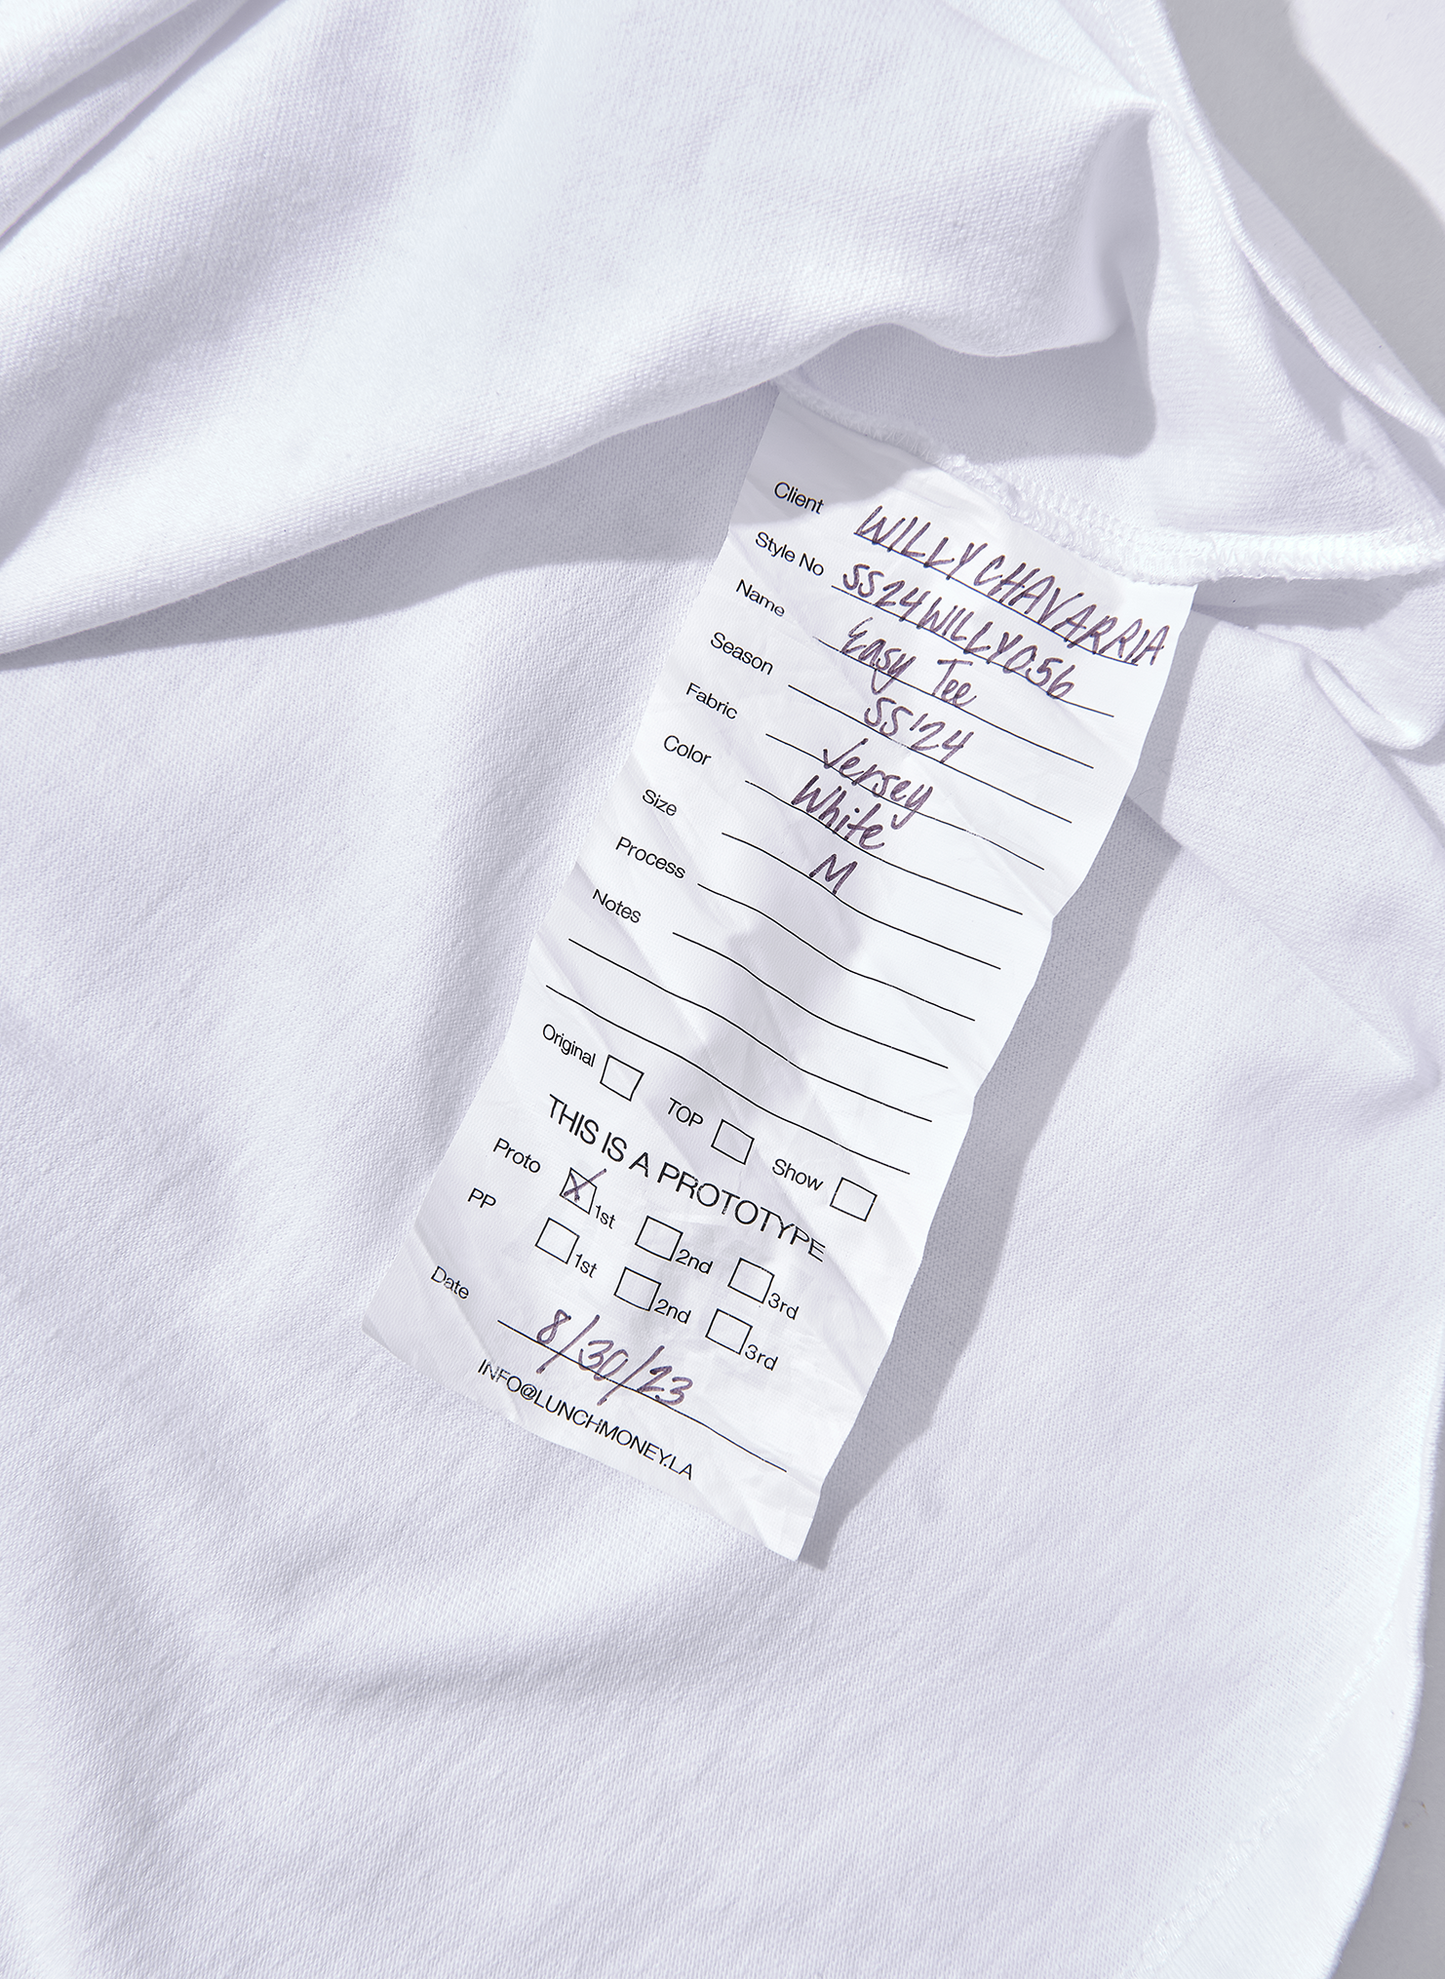 Client WILLY CHAVARRIA
Style No SS24WILLY056
Name Easy Tee
Season SS'24
Fabric Jersey
Color White
Size M
Process
Notes
Original TOP Show
THIS IS A PROTOTYPE
Proto X 1st 2nd 3rd
PP 1st 2nd 3rd
Date 8/30/23
INFO@LUNCHMONEY.LA